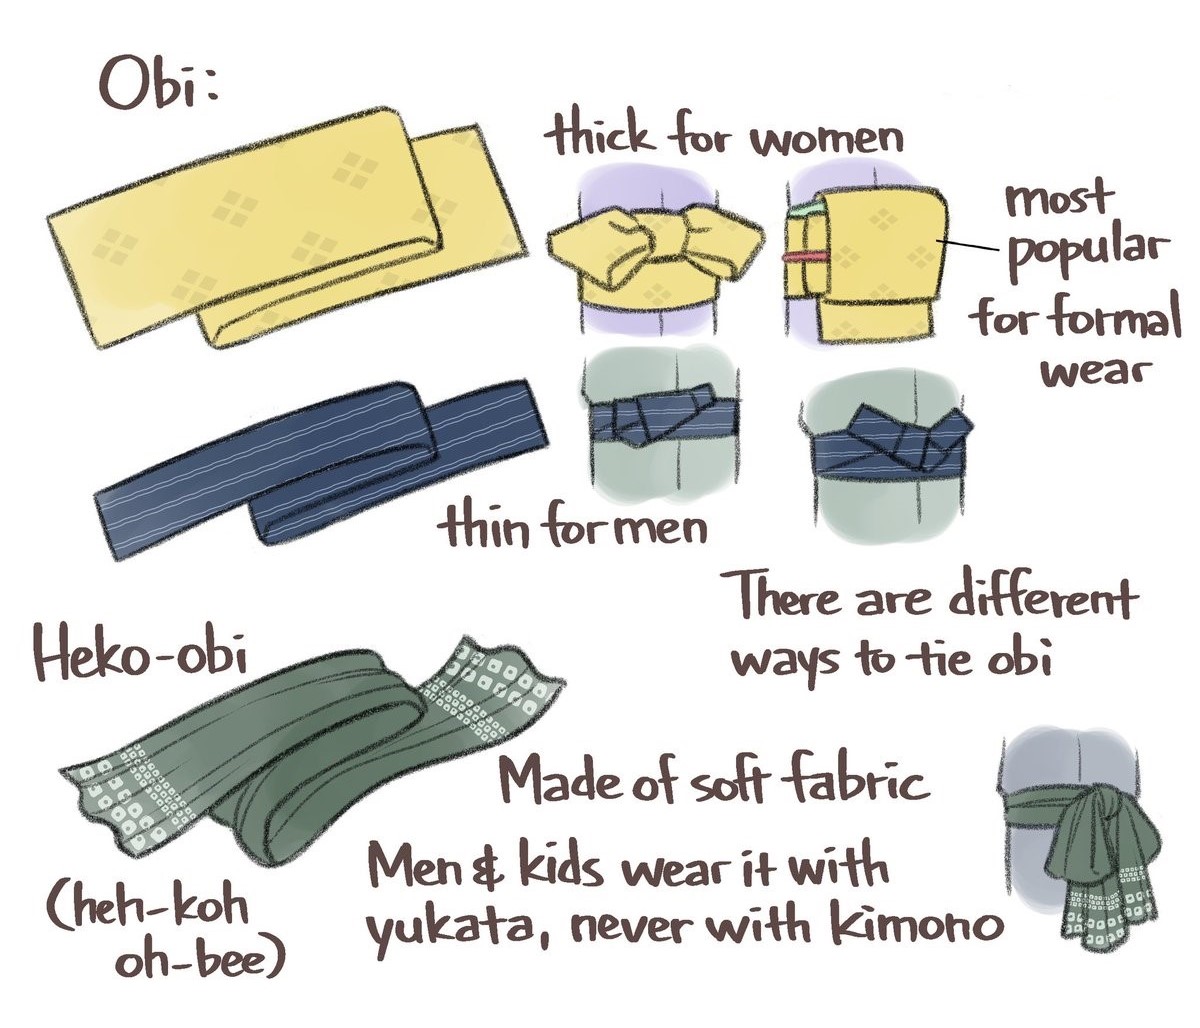 Obi:
thick for women
most
popular
for formal
wear
thin for men
There are different
ways to tie obi
Heko-obi
(heh-koh
oh-bee)
Made of soft fabric
Men & kids wear it with
yukata, never with kimono